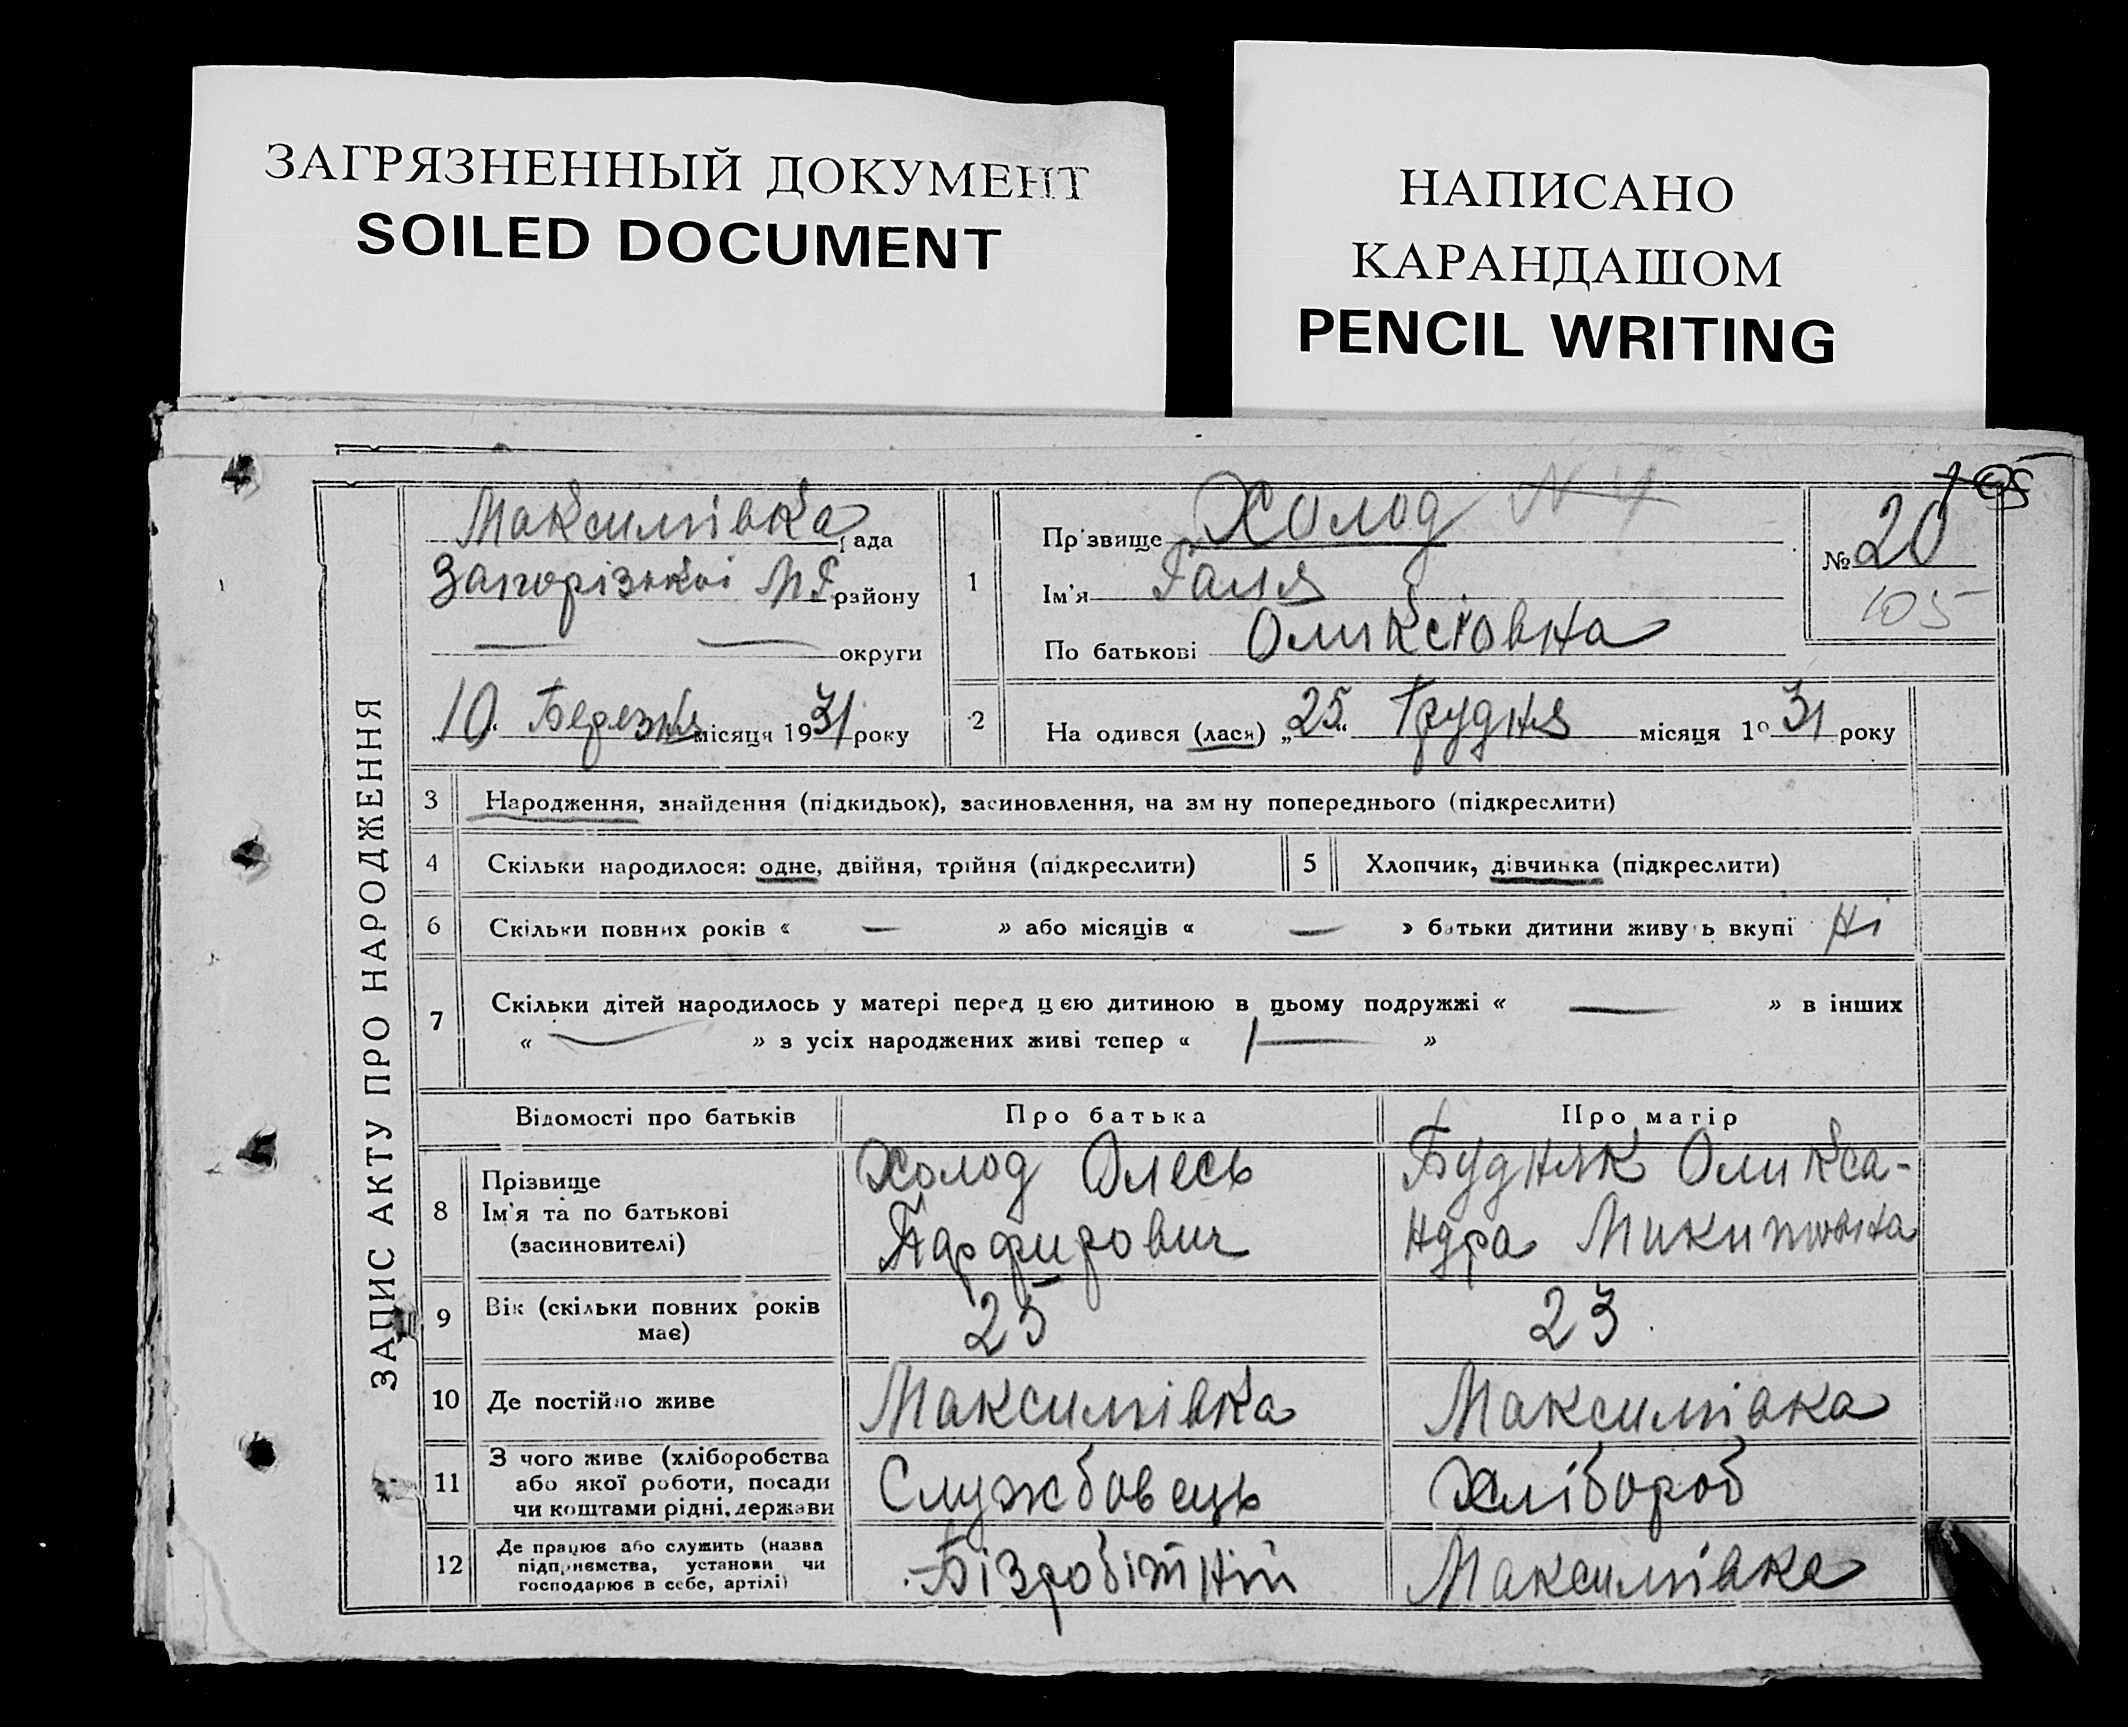 ЗАГРЯЗНЕННЫЙ ДОКУМЕНТ
SOILED DOCUMENT
НАПИСАНО
КАРАНДАШОМ
PENCIL WRITING
ЗАПИС АКТУ ПРО НАРОДЖЕННЯ
Максимівка рада
Запорізької М.Г. району
— — округи
„10“ Березня місяця 1931 року
1
Прізвище Холод N 4
Ім'я Галя
По батькові Оликсіовна
№ 20
105
2
На одився (лася) „25“ Грудня місяця 1931 року
3 Народження, знайдення (підкидьок), засиновлення, на зм ну попереднього (підкреслити)
4 Скільки народилося: одне, двійня, трійня (підкреслити)
5 Хлопчик, дівчинка (підкреслити)
6 Скільки повних років « — » або місяців « — » батьки дитини живуть вкупі Ні
7 Скільки дітей народилось у матері перед цією дитиною в цьому подружжі « — » в інших
« — » з усіх народжених живі тепер « 1— »
Відомості про батьків Про батька Про матір
8 Прізвище
Ім'я та по батькові
(засиновителі)
Холод Олесь
Парфирович
Будняк Оликса-
ндра Микитовна
9 Вік (скільки повних років
має)
25
23
10 Де постійно живе Максимівка Максимівка
11 З чого живе (хліборобства
або якої роботи, посади
чи коштами рідні, держави
Службовець
Хлібороб
12 Де працює або служить (назва
підприємства, установи чи
господарює в себе, артілі)
Бізробітній
Максимівка